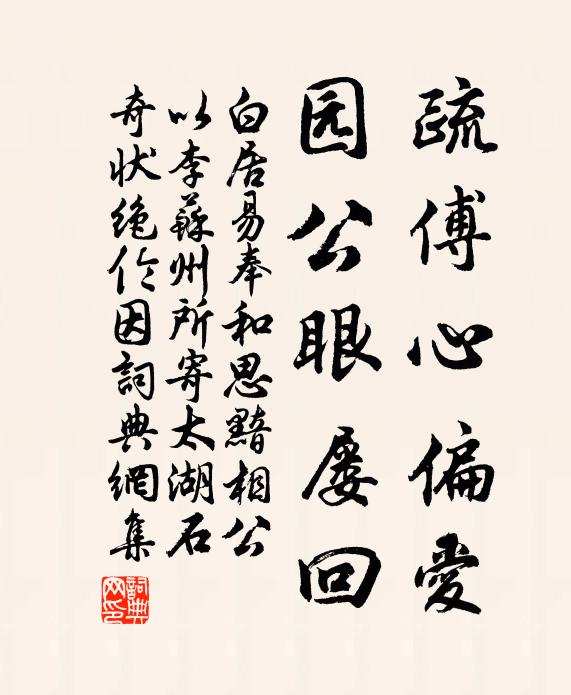 疏傅心偏爱
园公眼屡回
白居易奉和思黯相公
以李蘇州所寄太湖石
奇状绝伦因詞典網集
詞典網印